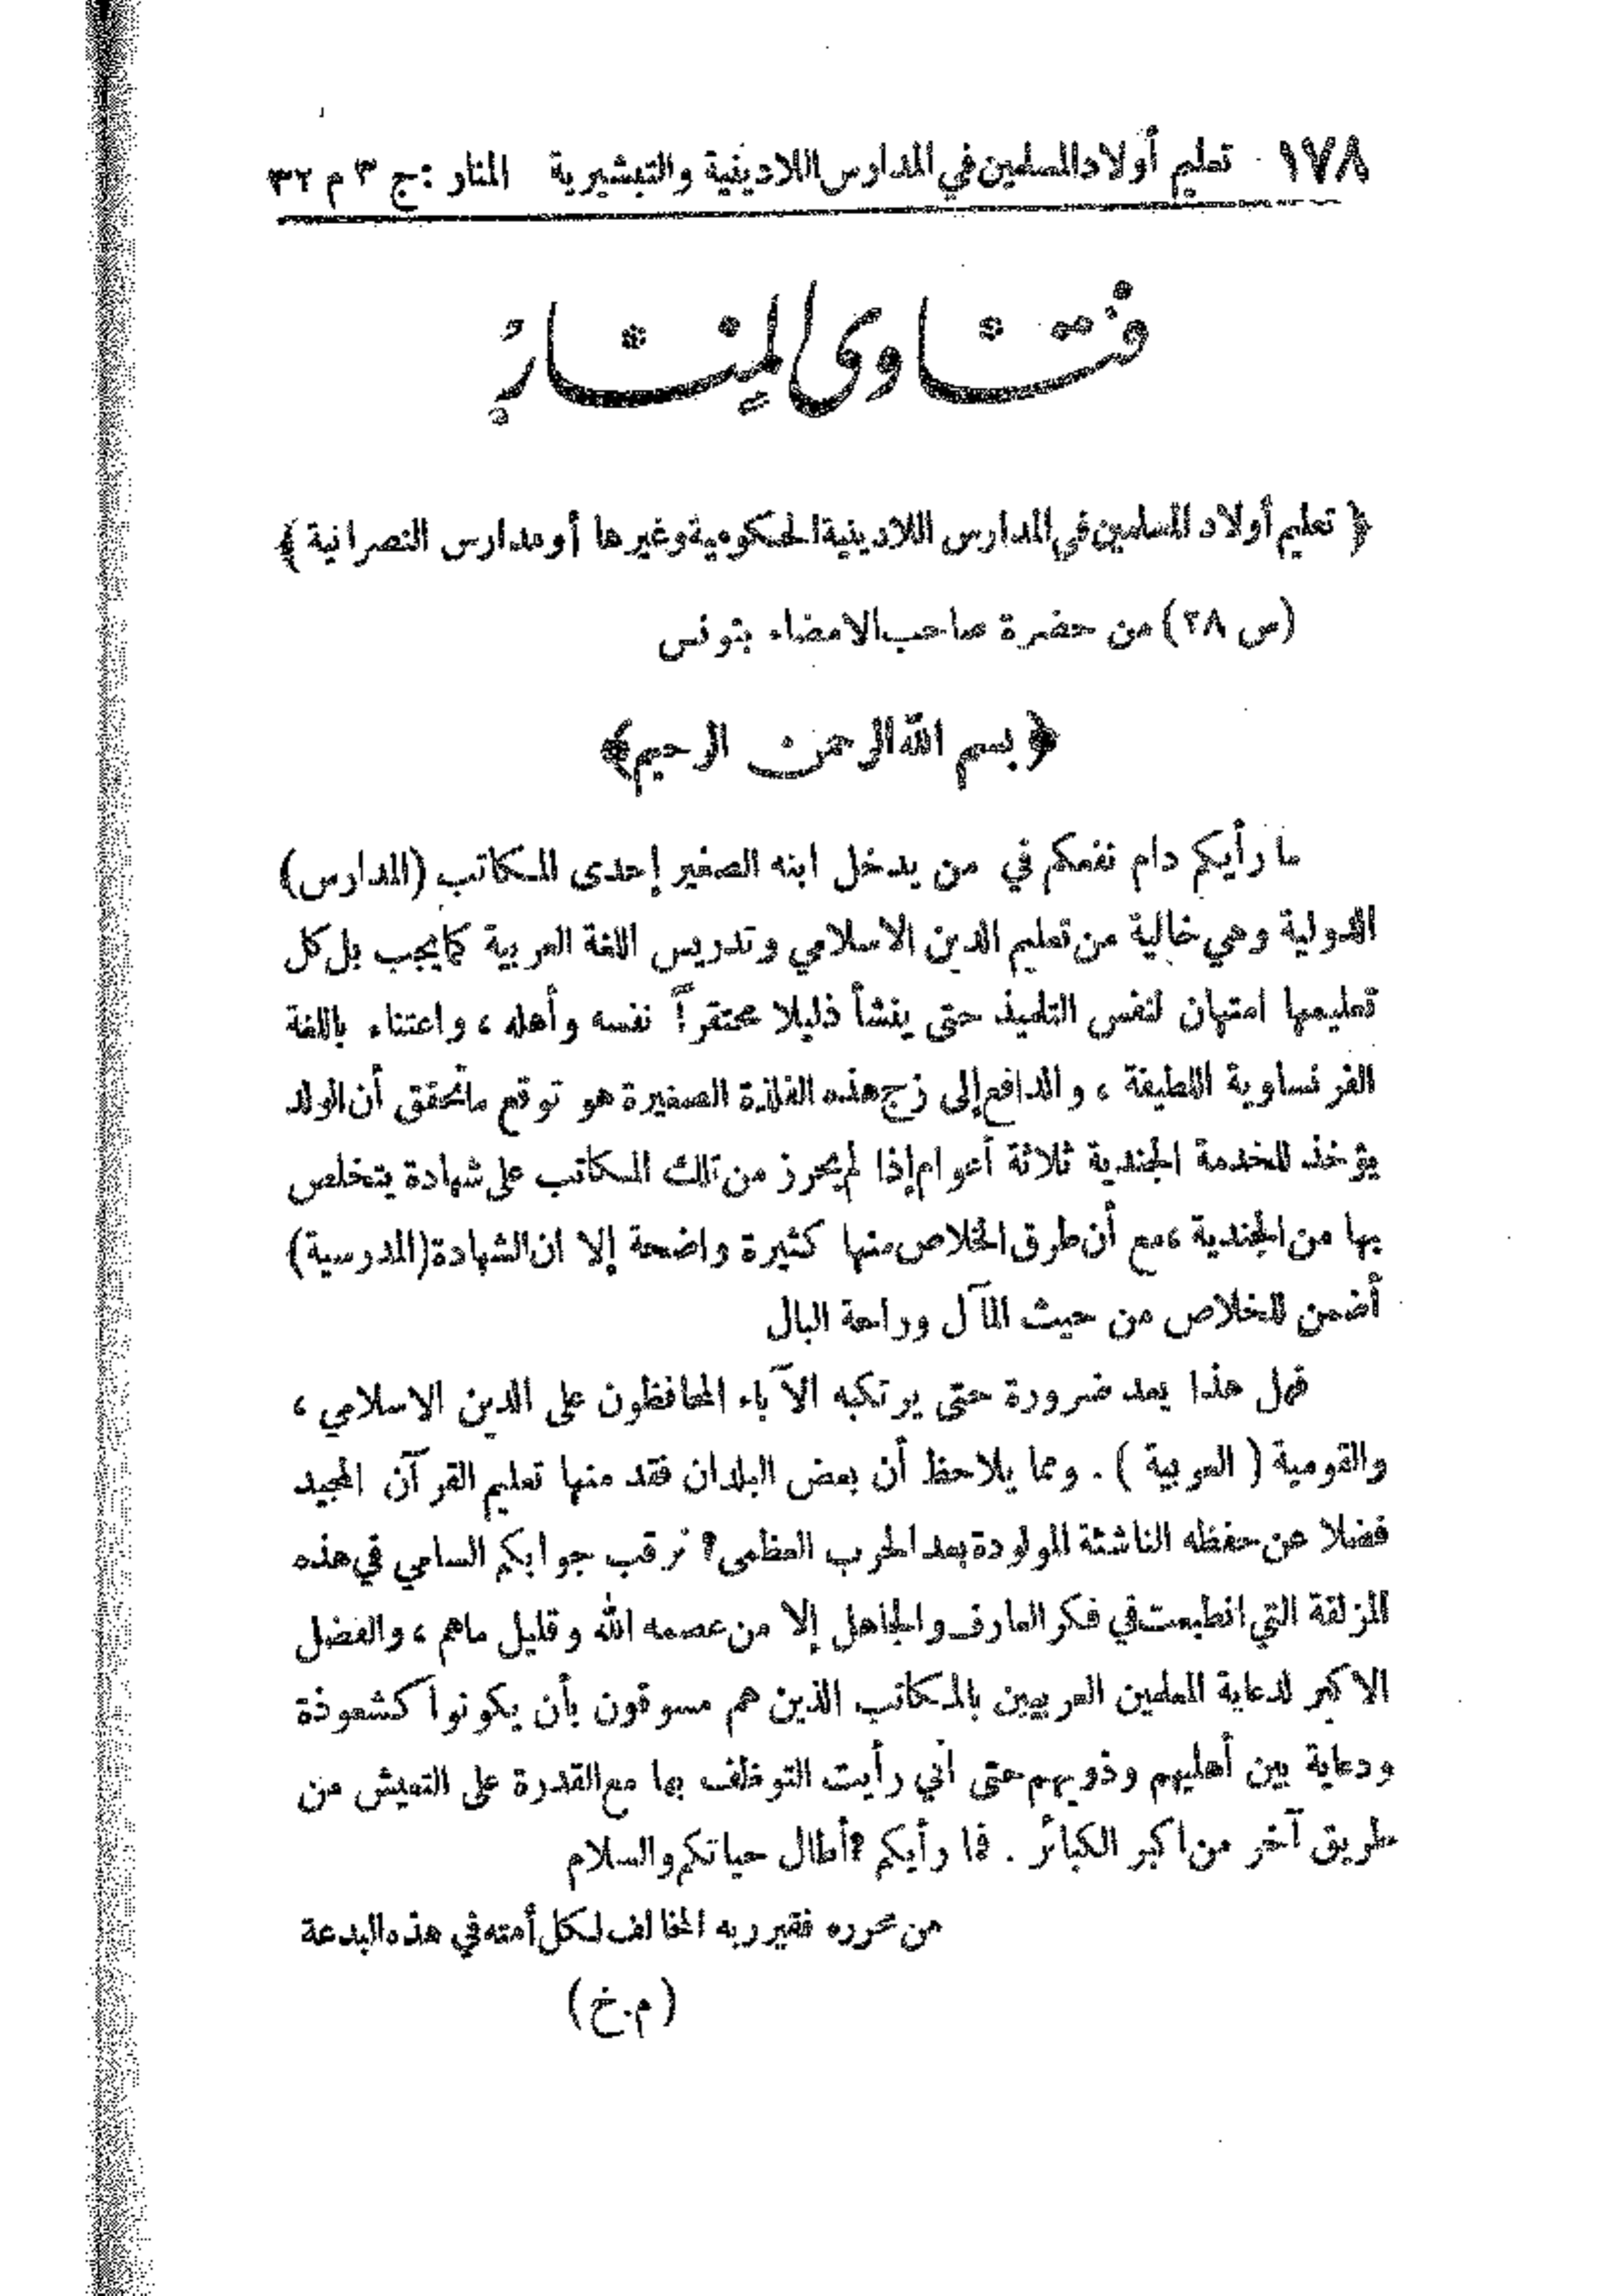 ١٧٨ تعليم أولاد المسلمين في المدارس اللادينية والتبشيرية المنار : ج ٣ م ٣٢
فتاوى المنار
﴿ تعليم أولاد المسلمين في المدارس اللادينية الحكومية وغيرها أو مدارس النصرانية ﴾
(س ٢٨) من حضرة صاحب الامضاء بتونس
﴿ بسم الله الرحمن الرحيم ﴾
ما رأيكم دام نفعكم في من يدخل ابنه الصغير إحدى المكاتب (المدارس)
الدولية وهي خالية من تعليم الدين الاسلامي وتدريس اللغة العربية كما يجب بل كل
تعليمها امتهان لنفس التلميذ حتى ينشأ ذليلا محتقراً نفسه وأهله ، واعتناء باللغة
الفرنساوية اللطيفة ، والدافع إلى زج هذه الفلذة الصغيرة هو توقع ما تحقق أن الولد
يؤخذ للخدمة الجندية ثلاثة أعوام إذا لم يحرز من تلك المكاتب على شهادة يتخلص
بها من الجندية ، مع أن طرق الخلاص منها كثيرة واضحة إلا ان الشهادة (المدرسية)
أضمن للخلاص من حيث المآل وراحة البال
فهل هذا يعد ضرورة حتى يرتكبه الآباء المحافظون على الدين الاسلامي ،
والقومية ( العربية ) . ومما يلاحظ أن بعض البلدان فقد منها تعليم القرآن المجيد
فضلا عن حفظه الناشئة المولودة بعد الحرب العظمى ؟ نرقب جوابكم السامي في هذه
المزلقة التي انطبعت في فكر العارف والجاهل إلا من عصمه الله وقليل ماهم ، والفضل
الاكبر لدعاية المعلمين العربيين بالمكاتب الذين هم مسوقون بأن يكونوا كشعوذة
ودعاية بين أهليهم وذويهم حتى أني رأيت التوظف بها مع القدرة على التعيش من
طريق آخر من اكبر الكبائر . فما رأيكم ؟ أطال حياتكم والسلام
من محرره فقير ربه المخالف لكل أمته في هذه البدعة
(م.خ)